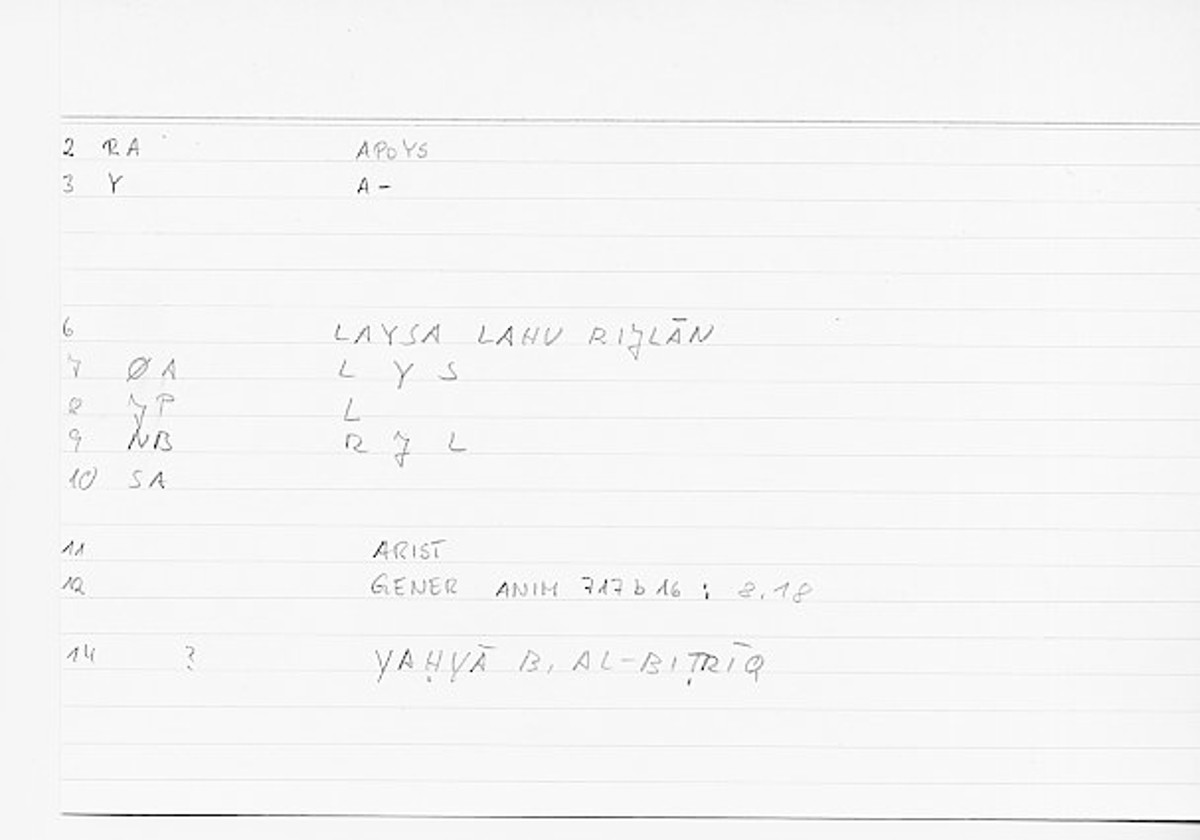 2 RA APOYS
3 Y A-
6 LAYSA LAHU RIJLĀN
7 ØA L Y S
8 JP L
9 NB R J L
10 SA
11 ARIST
12 GENER ANIM 717b16 : 8.18
14 ? YAḤYĀ B. AL-BIṬRĪQ